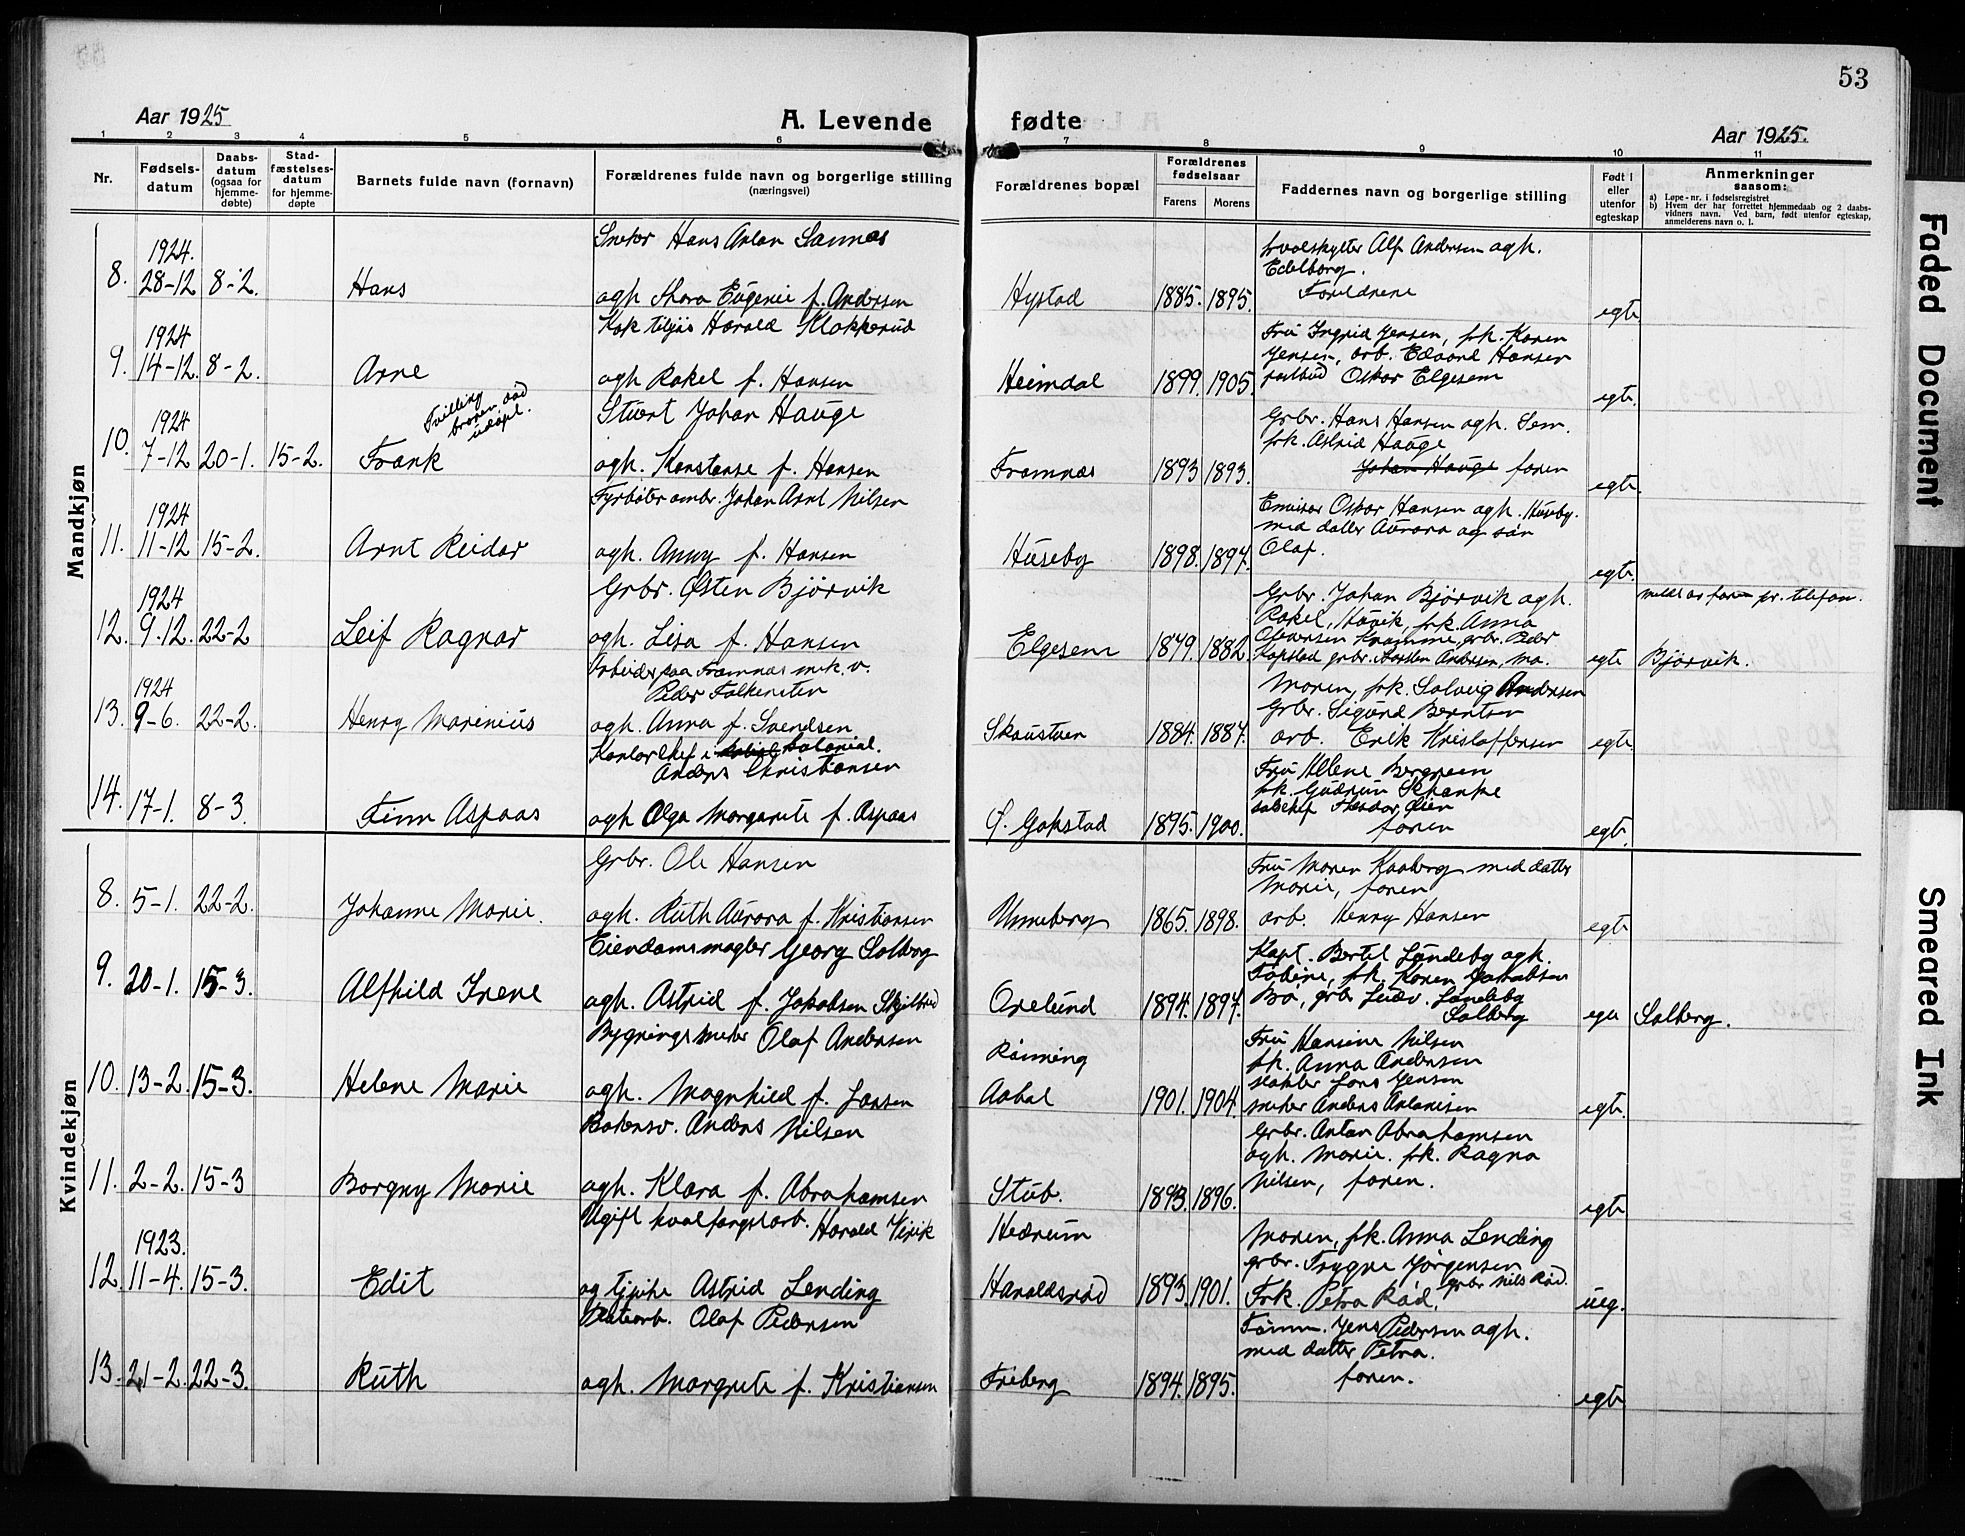 53
Aar 1925
A. Levende
fødte
Aar 1925.
1 2 3 4 5 6 7 8 9 10 11
Nr.
Fødsels-
datum
Daabs-
datum
(ogsaa for
hjemme-
døbte)
Stad-
fæstelses-
datum
for hjemme-
døpte
Barnets fulde navn (fornavn)
Forældrenes fulde navn og borgerlige stilling
(næringsvei)
Forældrenes bopæl
Forældrenes
fødselsaar
Farens
Morens
Faddernes navn og borgerlige stilling
Født i
eller
utenfor
egteskap
Anmerkninger
saasom:
a) Løpe-nr. i fødselsregistret
b) Hvem der har forrettet hjemmedaab og 2 daabs-
vidners navn. Ved barn, født utenfor egteskap,
anmelderens navn o. l.
Mandkjøn
8.
1924.
28-12
8-2.
Hans
Snekker Hans Anton Sannes
agh. Thora Eugenie f. Andersen
Hystad
1885.
1895.
Hvalskytter Alf Andersen agh.
Edelborg.
Foreldrene
egte
9.
1924
14-12.
8-2.
Arne
Kok tiljøs Harald Klokkerud
agh Rakel f. Hansen
Heimdal
1899.
1905.
Fru Ingrid Jensen, frk. Karen
Jensen, arb. Edvard Hansen
postbud Oskar Elgesem
egte.
10.
1924
7-12
20-1.
15-2.
Frank
Tvilling
broren død
udøpt.
Stuert Johan Hauge
agh. Konstanse f. Hansen
Framnæs
1893
1893.
Grbr. Hans Hansen agh. Sem.
frk. Astrid Hauge
Johan Hauge faren
egte.
11.
1924
11-12
15-2.
Arnt Reidar
Fyrbøter ombr. Johan Arnt Nilsen
agh. Anny f. Hansen
Huseby
1898.
1897.
Emissær Oskar Hansen agh. Huseby.
med datter Aurora og søn
Olaf.
egte.
12.
1924
9-12.
22-2
Leif Ragnar
Grbr. Østen Bjørvik
agh. Lisa f. Hansen
Elgesem
1879.
1882
Grbr. Johan Bjørvik agh.
Rakel, Haavik, frk. Anna
egte
meldt av faren pr. telefon.
Bjørvik.
13.
1924
9-6.
22-2.
Henry Marinius
Arbeider paa Framnæs mek. v.
Peder Falkensten
agh. Anna f. Svendsen
Skaustuen
1884.
1887.
Moren, frk. Solveig Andersen
Grbr. Sigurd Berntsen
arb. Erik Kristoffersen
egte
14.
17-1.
8-3.
Finn Aspaas
Kontorchef i kolonial.
Anders Christiansen
agh Olga Margarete f. Aspaas
Ø. Gokstad
1895.
1900.
Fru Ellene Bergreen
frk. Gudrun Schanke
faren
egte.
Kvindekjøn
8.
5-1.
22-2.
Johanne Marie.
Grbr. Ole Hansen
agh. Ruth Aurora f. Kristiansen
Unneberg
1865.
1898.
Fru Maren Kaaberg med datter
Marie, faren
arb. Henry Hansen
egte
9.
20-1.
15-3.
Alfhild Irene
Eiendomsmægler Georg Solberg
agh. Astrid f. Jakobsen Skjelbred
Orelund
1894.
1897.
Kapt. Bertel Lundeby agh.
Tobine, frk. Karen Jakobsen
Bø, grbr Ludv. Lundeby
Solberg
egte
Solberg.
10.
13-2.
15-3.
Helene Marie
Bygningssneker Olaf Andersen
agh. Magnhild f. Larsen
Rønning
Aabøl
1901.
1904.
Fru Hansine Nilsen
frk. Anna Andersen
slakter Lars Jensen
sneker Anders Antonisen
egte.
11.
2-2.
15-3
Borgny Marie
Bakersv. Anders Nilsen
agh. Klara f. Abrahamsen
Stub.
1893.
1896.
Grbr. Anton Abrahamsen
agh. Marie. frk. Ragna
Nilsen, faren.
egte
12.
1923.
11-4.
15-3.
Edit
Ugift hvalfangstarb. Harald Virik
og tjpike Astrid Lending
Hedrum
Haraldsrød
1893.
1901.
Moren, frk. Anna Lending
grbr. Trygve Jørgensen
Frk. Petra Rød. grbr Nils Rød.
ueg.
13.
21-2.
22-3.
Ruth
Olaf Pedersen
agh. Margrete f. Kristiansen
Friberg
1894.
1895.
Tømm. Jens Pedersen agh.
med datter Petra.
faren.
egte
Faded Document
Smeared Ink